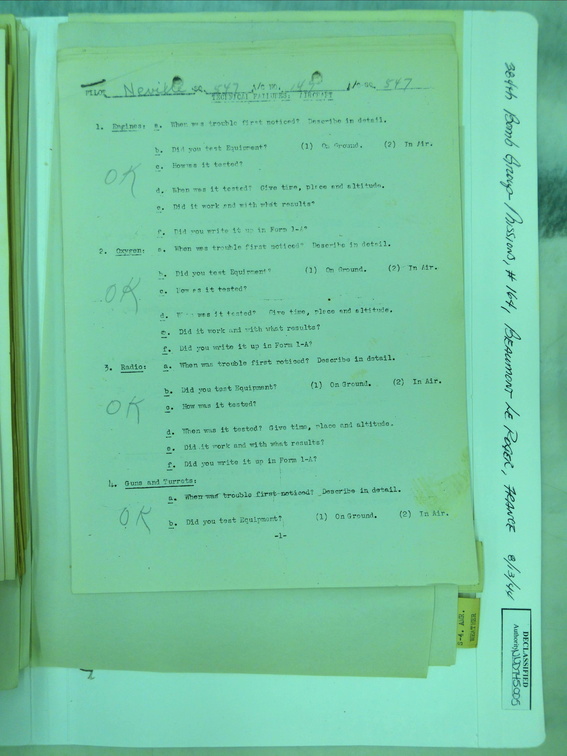 PILOT Neville 847 A/C NO. 847
TECHNICAL FAILURES: AIRCRAFT
1. Engines: a. When was trouble first noticed? Describe in detail.
b. Did you test Equipment? (1) On Ground. (2) In Air.
c. How was it tested?
OK
d. When was it tested? Give time, place and altitude.
e. Did it work and with what results?
f. Did you write it up in Form 1-A?
2. Oxygen: a. When was trouble first noticed? Describe in detail.
b. Did you test Equipment? (1) On Ground. (2) In Air.
c. How as it tested?
OK
d. was it tested? Give time, place and altitude.
e. Did it work and with what results?
f. Did you write it up in Form 1-A?
3. Radio: a. When was trouble first noticed? Describe in detail.
b. Did you test Equipment? (1) On Ground. (2) In Air.
OK c. How was it tested?
d. When was it tested? Give time, place and altitude.
e. Did it work and with what results?
f. Did you write it up in Form 1-A?
4. Guns and Turrets:
a. When was trouble first noticed? Describe in detail.
OK b. Did you test Equipment? (1) On Ground. (2) In Air.
-1-
384th Bomb Group Missions, # 164, BEAUMONT LE ROGER, FRANCE 8/13/44
DECLASSIFIED
Authority NND745005